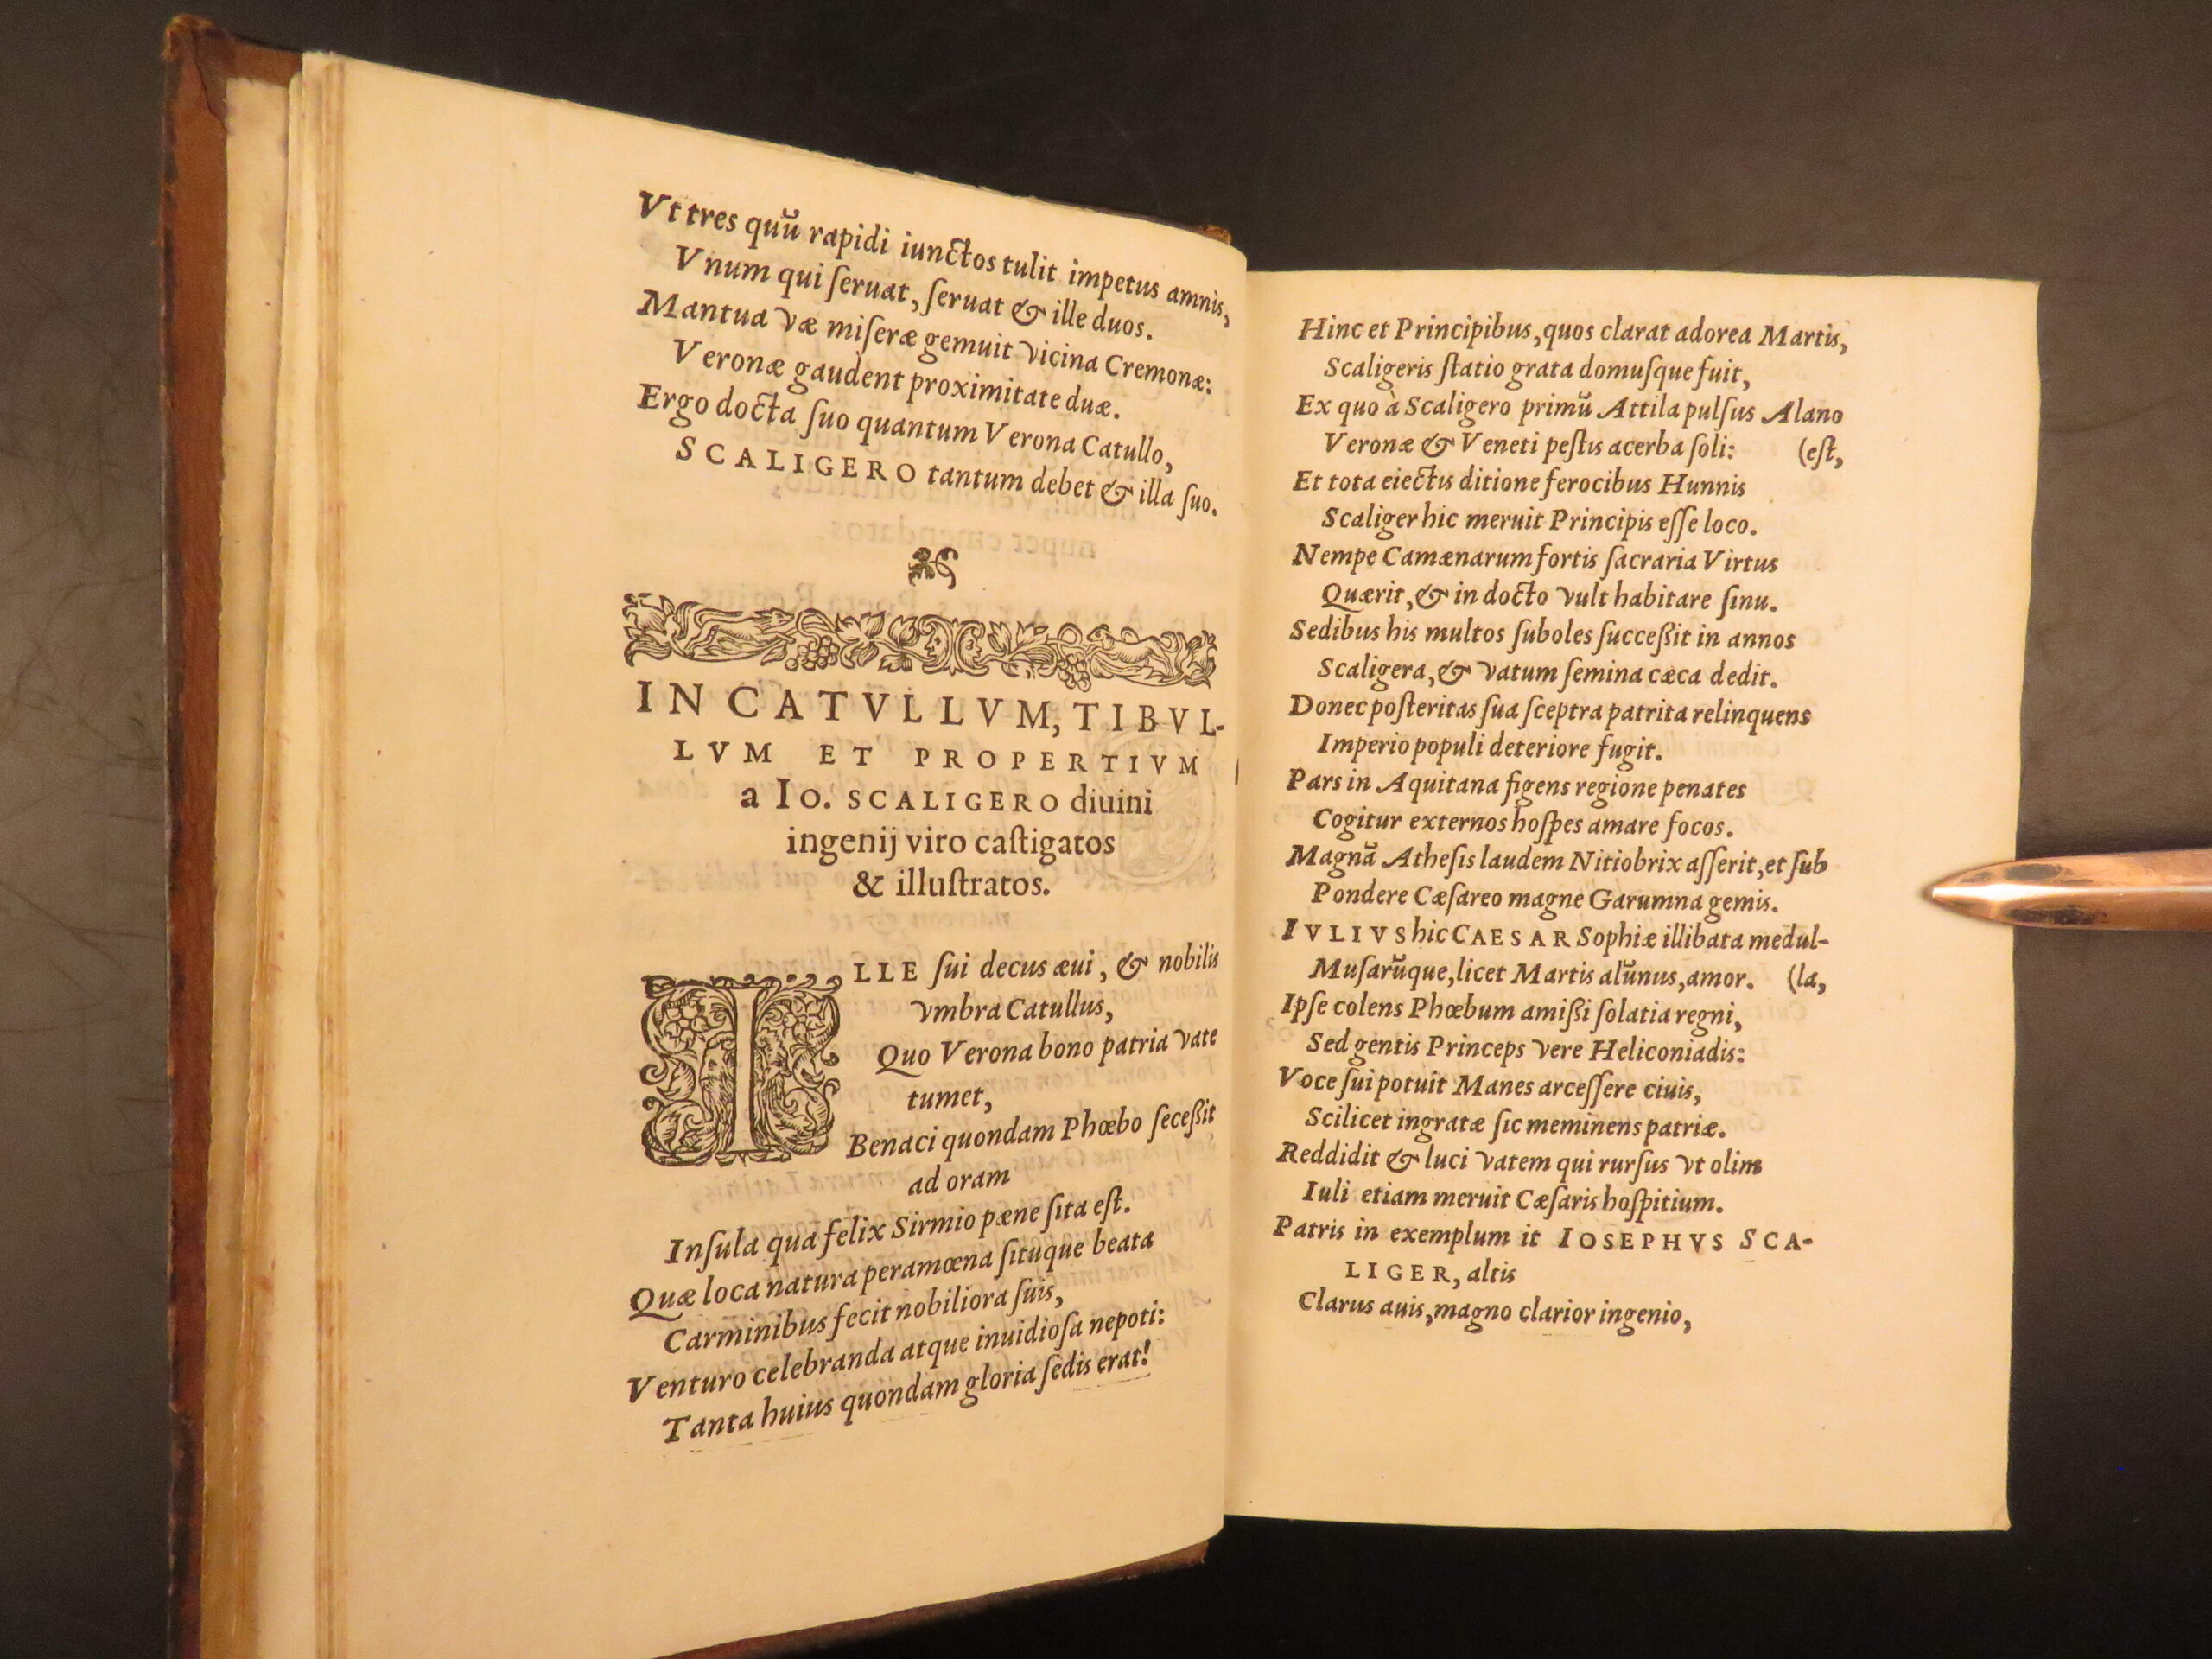 Vt tres quũ rapidi iunctos tulit impetus amnis,
Vnum qui ſeruat, ſeruat & ille duos.
Mantua væ miſeræ gemuit vicina Cremonæ:
Veronæ gaudent proximitate duæ.
Ergo docta ſuo quantum Verona Catullo,
SCALIGERO tantum debet & illa ſuo.
IN CATVLLVM, TIBVL-
LVM ET PROPERTIVM
a Io. SCALIGERO diuini
ingenij viro caſtigatos
& illuſtratos.
ILLE ſui decus æui, & nobilis
vmbra Catullus,
Quo Verona bono patria vate
tumet,
Benaci quondam Phœbo ſeceßit
ad oram
Inſula qua felix Sirmio pæne ſita eſt.
Quæ loca natura peramœna ſituque beata
Carminibus fecit nobiliora ſuis,
Venturo celebranda atque inuidioſa nepoti:
Tanta huius quondam gloria ſedis erat!
Hinc et Principibus, quos clarat adorea Martis,
Scaligeris ſtatio grata domuſque fuit,
Ex quo à Scaligero primũ Attila pulſus Alano
Veronæ & Veneti peſtis acerba ſoli: (eſt,
Et tota eiectis ditione ferocibus Hunnis
Scaliger hic meruit Principis eſſe loco.
Nempe Camænarum fortis ſacraria Virtus
Quærit, & in docto vult habitare ſinu.
Sedibus his multos ſuboles ſucceßit in annos
Scaligera, & vatum ſemina cæca dedit.
Donec poſteritas ſua ſceptra patrita relinquens
Imperio populi deteriore fugit.
Pars in Aquitana figens regione penates
Cogitur externos hoſpes amare focos.
Magnã Atheſis laudem Nitiobrix aſſerit, et ſub
Pondere Cæſareo magne Garumna gemis.
IVLIVS hic CAESAR Sophiæ illibata medul-
Muſarũque, licet Martis alũnus, amor. (la,
Ipſe colens Phœbum amißi ſolatia regni,
Sed gentis Princeps vere Heliconiadis:
Voce ſui potuit Manes arceſſere ciuis,
Scilicet ingratæ ſic meminens patriæ.
Reddidit & luci vatem qui rurſus vt olim
Iuli etiam meruit Cæſaris hoſpitium.
Patris in exemplum it IOSEPHVS SCA-
LIGER, altis
Clarus auis, magno clarior ingenio,